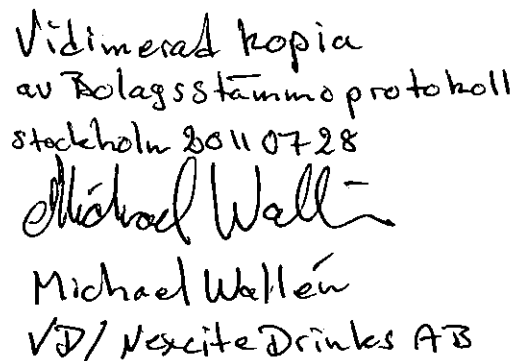 Vidimerad kopia
av Bolagsstämmoprotokoll
Stockholm 2011 07 28
Michael Wallén
Michael Wallén
VD/ Nexcite Drinks AB